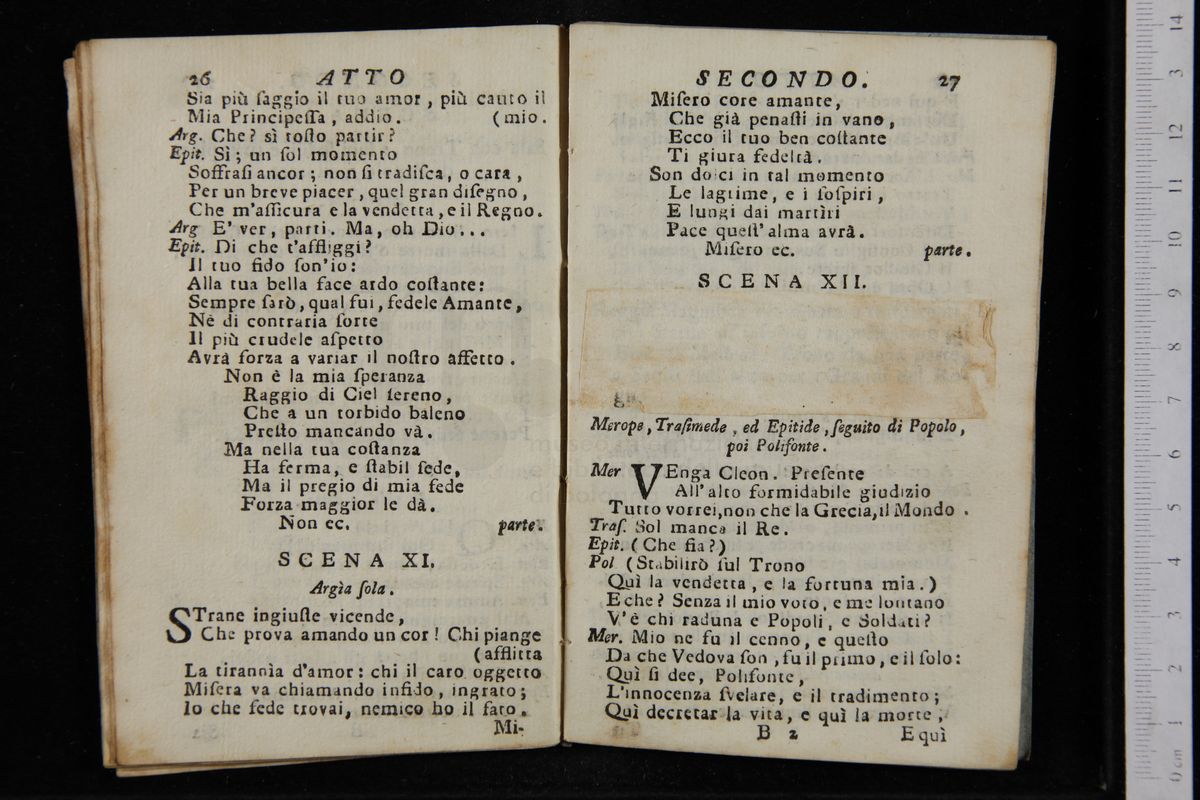 26 ATTO
Sia più ſaggio il tuo amor, più cauto il
Mia Principeſſa, addio. (mio.
Arg. Che? sì toſto partir?
Epit. Sì; un ſol momento
Soffraſi ancor; non ſi tradiſca, o cara,
Per un breve piacer, quel gran diſegno,
Che m'aſſicura e la vendetta, e il Regno.
Arg E' ver, parti. Ma, oh Dio...
Epit. Di che t'affliggi?
Il tuo fido ſon'io:
Alla tua bella face ardo coſtante:
Sempre ſarò, qual fui, fedele Amante,
Nè di contraria ſorte
Il più crudele aſpetto
Avrà forza a variar il noſtro affetto.
Non è la mia ſperanza
Raggio di Ciel ſereno,
Che a un torbido baleno
Preſto mancando và.
Ma nella tua coſtanza
Ha ferma, e ſtabil ſede,
Ma il pregio di mia fede
Forza maggior le dà.
Non ec. parte.
SCENA XI.
Argìa ſola.
STrane ingiuſte vicende,
Che prova amando un cor! Chi piange
(afflitta
La tirannìa d'amor: chi il caro oggetto
Miſera va chiamando infido, ingrato;
Io che fede trovai, nemico ho il fato.
Mi-
SECONDO. 27
Miſero core amante,
Che già penaſti in vano,
Ecco il tuo ben coſtante
Ti giura fedeltà.
Son dolci in tal momento
Le lagrime, e i ſoſpiri,
E lungi dai martìri
Pace queſt'alma avrà.
Miſero ec. parte.
SCENA XII.
Merope, Traſimede, ed Epitide, ſeguito di Popolo,
poi Polifonte.
Mer VEnga Cleon. Preſente
All'alto formidabile giudizio
Tutto vorrei, non che la Grecia, il Mondo.
Traſ. Sol manca il Re.
Epit. (Che fia?)
Pol (Stabilirò ſul Trono
Quì la vendetta, e la fortuna mia.)
E che? Senza il mio voto, e me lontano
V'è chi raduna e Popoli, e Soldati?
Mer. Mio ne fu il cenno, e queſto
Da che Vedova ſon, fu il primo, e il ſolo:
Quì ſi dee, Polifonte,
L'innocenza ſvelare, e il tradimento;
Quì decretar la vita, e quì la morte,
B 2 E quì